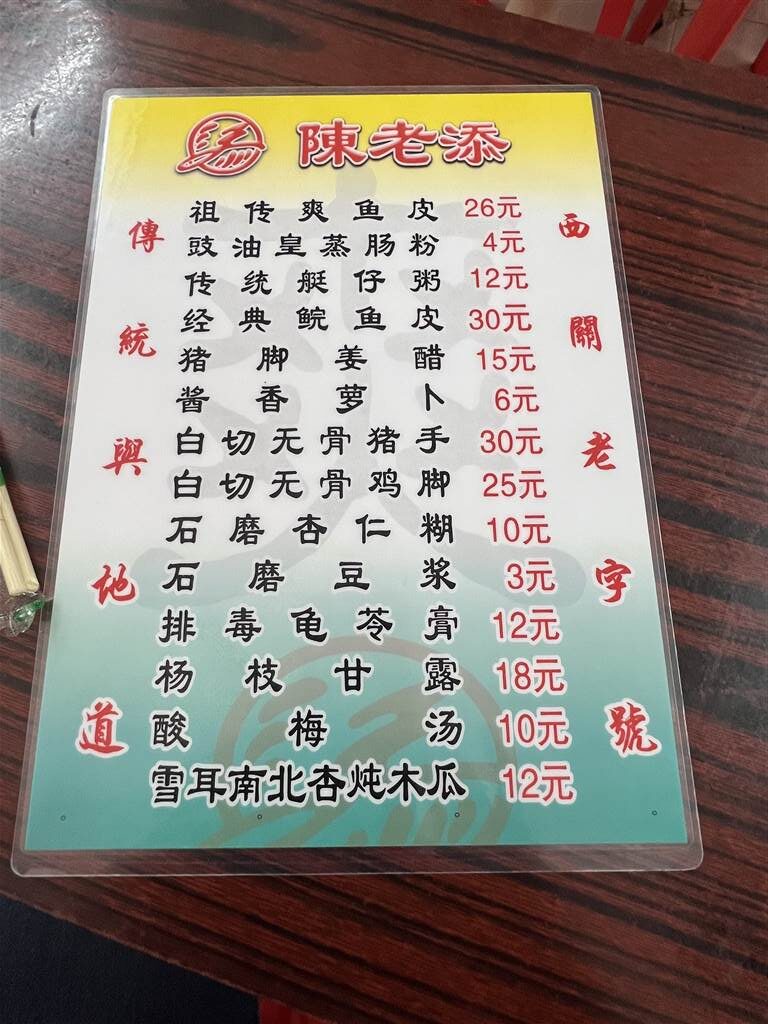 陳老添
祖传爽鱼皮 26元
豉油皇蒸肠粉 4元
传统艇仔粥 12元
经典鲩鱼皮 30元
猪脚姜醋 15元
酱香萝卜 6元
白切无骨猪手 30元
白切无骨鸡脚 25元
石磨杏仁糊 10元
石磨豆浆 3元
排毒龟苓膏 12元
杨枝甘露 18元
酸梅汤 10元
雪耳南北杏炖木瓜 12元
傳統與地道
西關老字號
爽